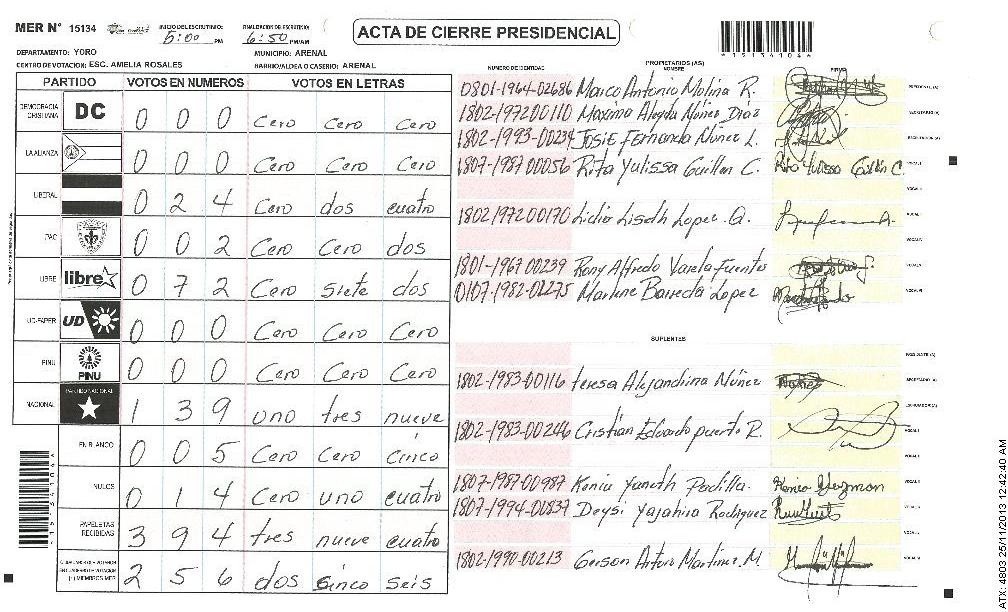 MER N° 15134
INICIO DEL ESCRUTINIO: 5:00 PM
FINALIZACION DE ESCRUTINIO: 6:50 PM/AM
ACTA DE CIERRE PRESIDENCIAL
DEPARTAMENTO: YORO
MUNICIPIO: ARENAL
CENTRO DE VOTACION: ESC. AMELIA ROSALES
BARRIO/ALDEA O CASERIO: ARENAL
PARTIDO VOTOS EN NUMEROS VOTOS EN LETRAS
DEMOCRACIA CRISTIANA DC 0 0 0 Cero Cero Cero
LA ALIANZA 0 0 0 Cero Cero Cero
LIBERAL 0 2 4 Cero dos cuatro
PAC 0 0 2 Cero Cero dos
LIBRE libre 0 7 2 Cero Siete dos
UD-FAPER UD 0 0 0 Cero Cero Cero
PINU PINU 0 0 0 Cero Cero Cero
NACIONAL PARTIDO NACIONAL 1 3 9 uno tres nueve
EN BLANCO 0 0 5 Cero Cero Cinco
NULOS 0 1 4 Cero uno cuatro
PAPELETAS RECIBIDAS 3 9 4 tres nueve cuatro
(+) MIEMBROS MER 2 5 6 dos cinco seis
PROPIETARIOS (AS)
NUMERO DE IDENTIDAD NOMBRE FIRMA
0801-1964-02686 Marco Antonio Molina R. PRESIDENTE (A)
1802-197200110 Maxima Aleyda Núñez Diaz SECRETARIO (A)
1802-1993-00234 JOSIE Fernanda Núñez L. ESCRUTADOR (A)
1807-1987 00056 Rita Yulissa Guillen C. Rita Yulissa Guillén C. VOCAL I
VOCAL II
1802197200170 Lidia Liseth Lopez. A. VOCAL III
VOCAL IV
1801-1967 00239 Rony Alfredo Varela Fuentes VOCAL V
0107-1982-02275 Marlene Banegda Lopez VOCAL VI
SUPLENTES
PRESIDENTE (A)
1802-1983-00116 teresa Alejandrina Núñez SECRETARIO (A)
ESCRUTADOR (A)
1802-1983-00246 Cristian Eduardo puerto R. VOCAL I
VOCAL II
1807-1987-00987 Kenia Yaneth Padilla. VOCAL III
1807-1994-00837 Deysi Yajahira Rodriguez VOCAL IV
VOCAL V
1802-1990-00213 Gerson Arturo Martinez. M. VOCAL VI
*15134104*
ATX: 4803 25/11/2013 12:42:40 AM